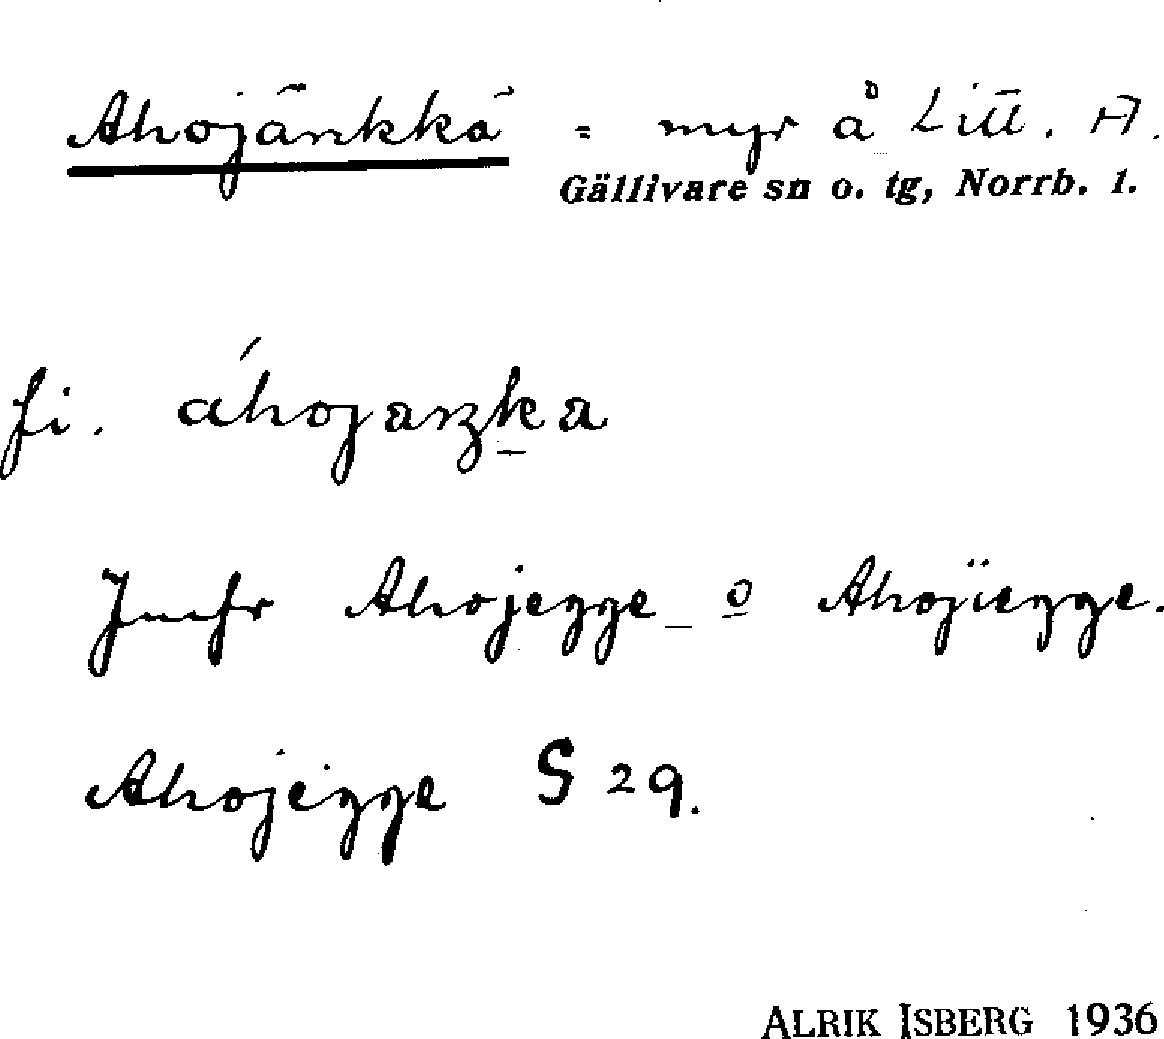 Ahojänkkä = myr å Litt. A.
Gällivare sn o. tg, Norrb. 1.
fi. áhojaŋka
Jmfr Ahojegge o Ahojiegge.
Ahojegge S 29.
ALRIK ISBERG 1936